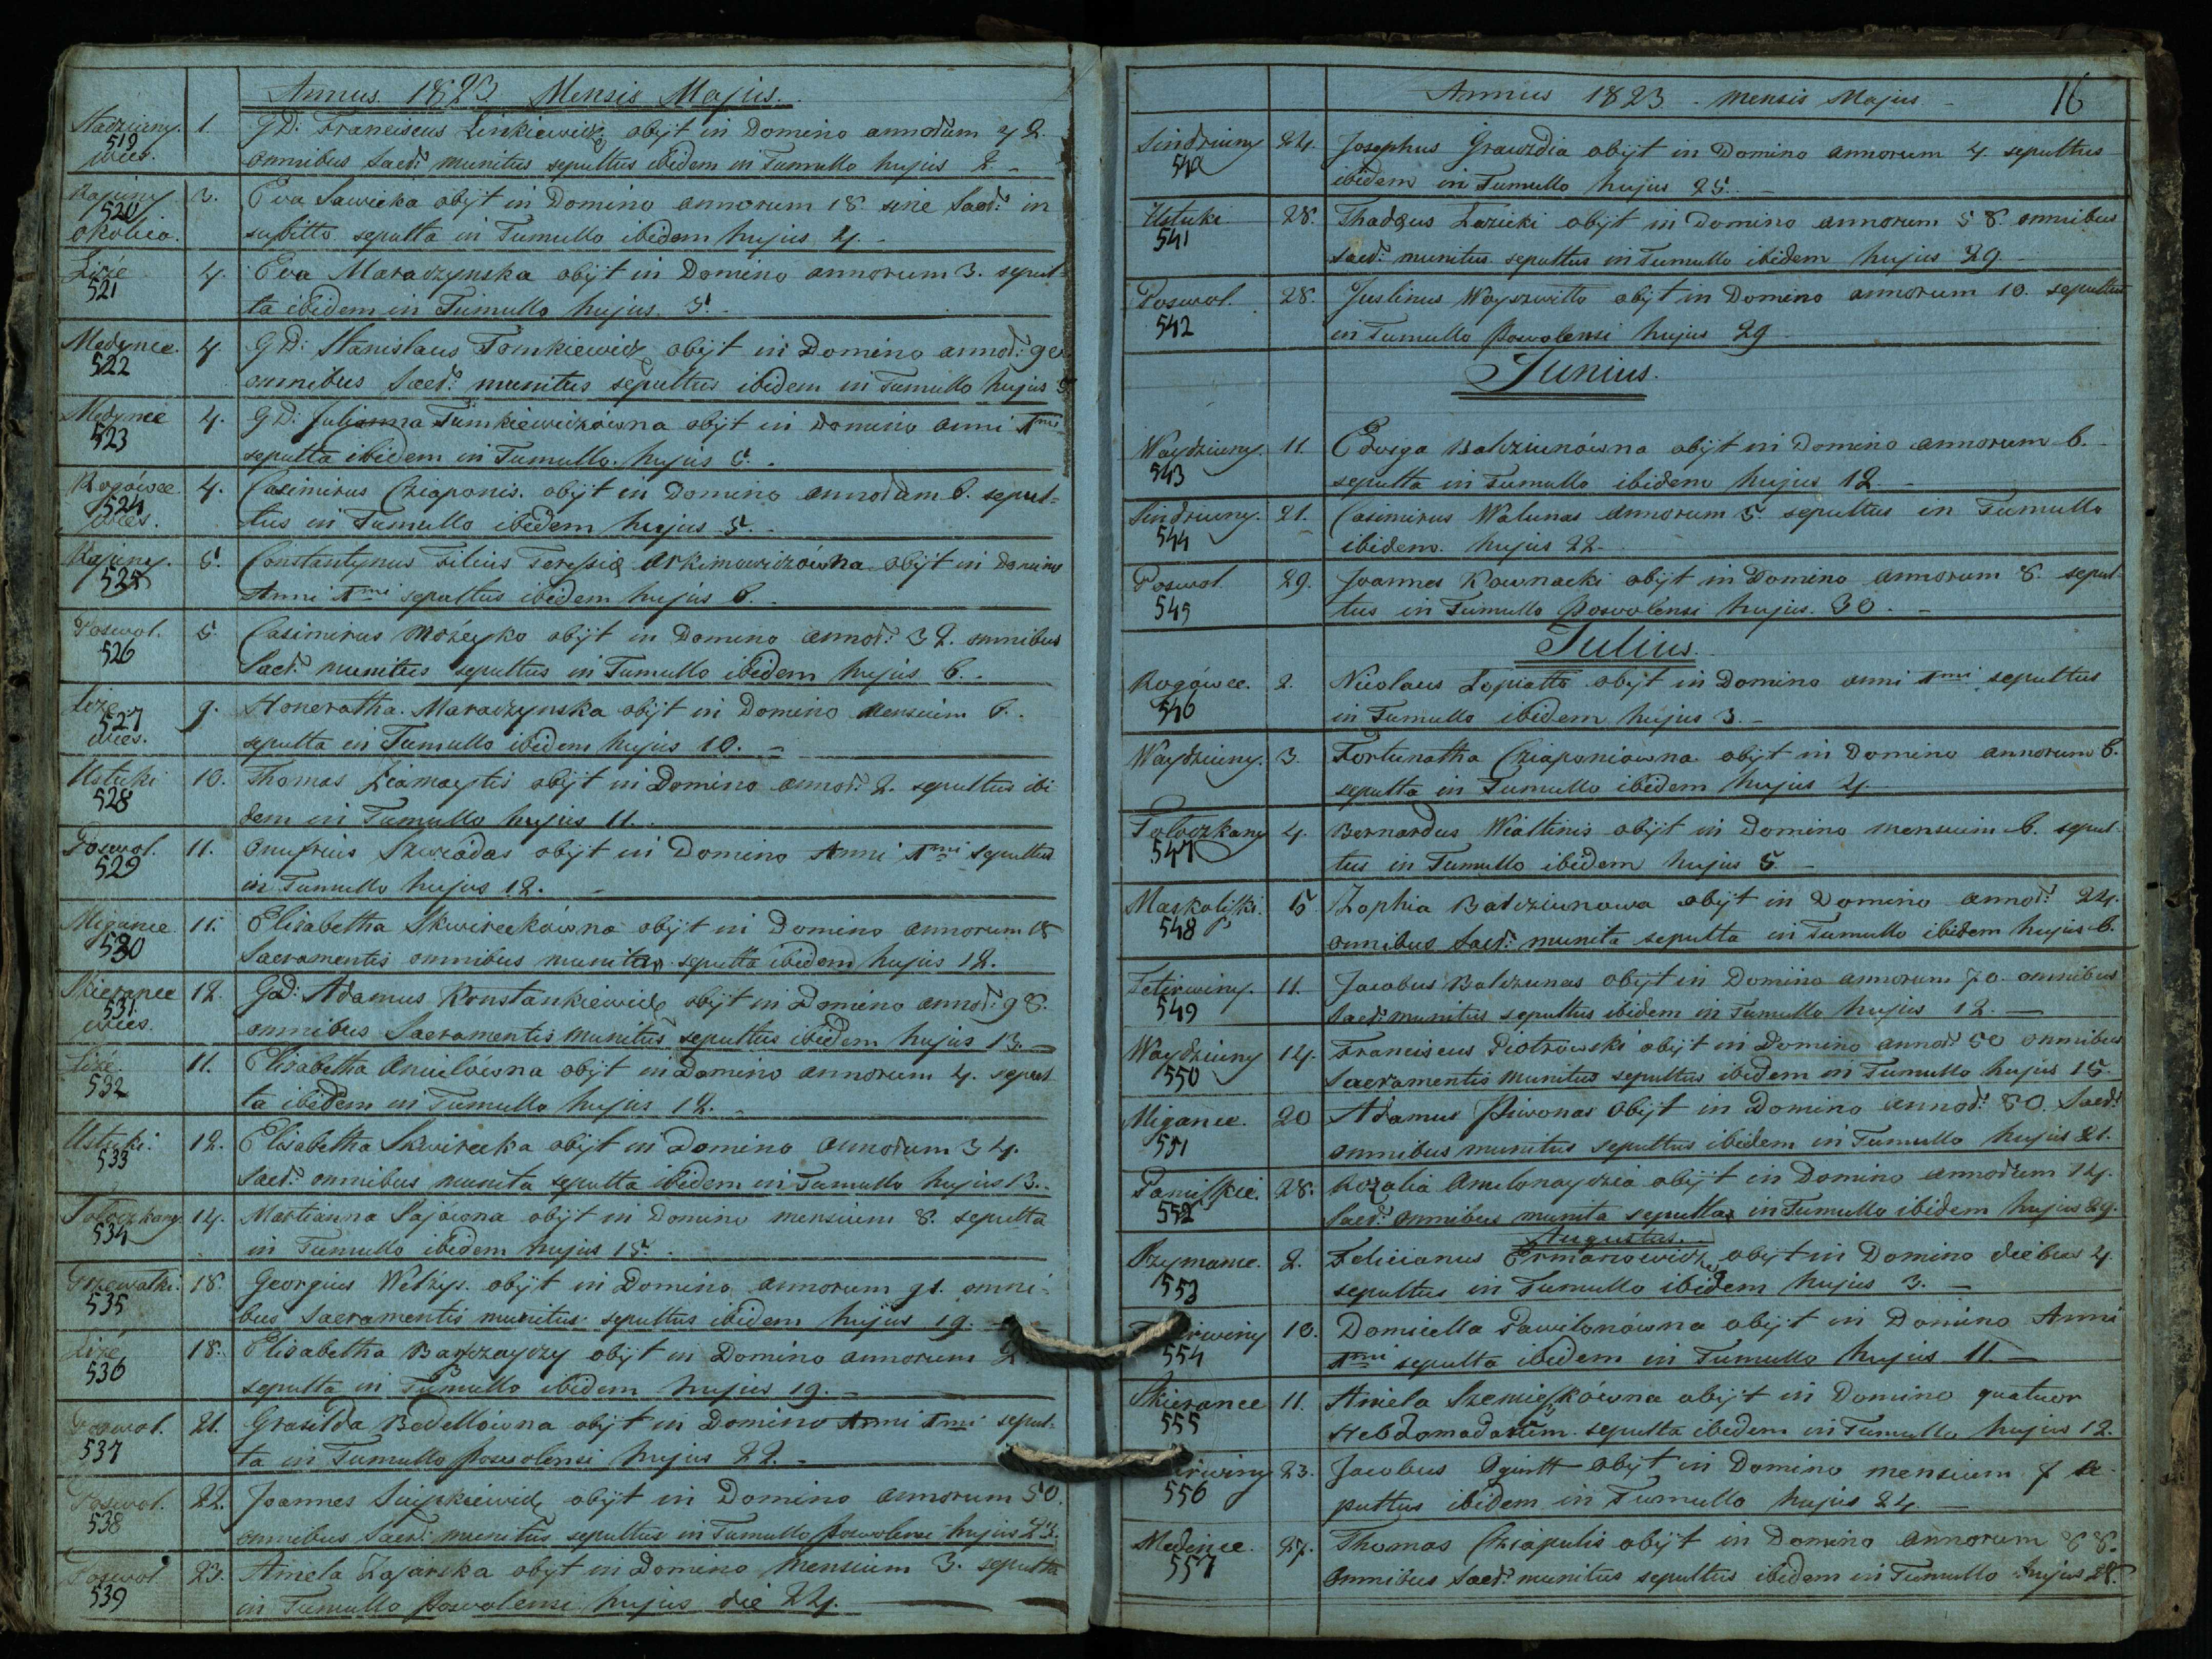 Annus 1823 Mensis Majus.
Nadziuny. 519 wies. 1. GD: Franciscus Linkiewicz obijt in Domino annorum 42.
omnibus Sacr: munitus sepultus ibidem in Tumullo hujus 2.
Rajuny 520 okolica. 3. Eva Sawicka obijt in Domino annorum 18. sine Sacr: in
subitto sepulta in Tumullo ibidem hujus 4.
Liże 521 4. Eva Maradzynska obijt in Domino annorum 3. sepul-
ta ibidem in Tumullo hujus 5.
Medynce. 522 4. GD: Stanislaus Tomkiewicz obijt in Domino annor:
omnibus Sacr: munitus sepultus ibidem in Tumullo hujus 5
Medynce 523 4. GD: Julianna Tumkiewiczówna obijt in Domino anni 1mi
sepulta ibidem in Tumullo hujus 5.
Rogówce 524 wies. 4. Casimirus Cziaponis. obijt in Domino annorum 6. sepul-
tus in Tumullo ibidem hujus 5.
Rajuny. 525 5. Constantynus Filius Teressiæ Arkimowiczówna obijt in Domino
Anni 1mi sepultus ibidem hujus 6.
Poswol. 526 5. Casimirus Możeyko obijt in Domino annor: 32. omnibus
Sacr: munitus sepultus in Tumullo ibidem hujus 6.
Liże 527 wies. 9. Honeratha Maradzynska obijt in Domino mensium 6.
sepulta in Tumullo ibidem hujus 10.
Ustuki 528 10. Thomas Ziamaytis obijt in Domino annor: 2. sepultus ibi
dem in Tumullo hujus 11.
Poswol. 529 11. Onufrius Szwiadas obijt in Domino Anni 1mi sepultus
in Tumullo hujus 12.
Migance 530 11. Elisabetha Skwireckówna obijt in Domino annorum 18
Sacramentis omnibus munita sepulta ibidem hujus 12.
Skierance 531. wies. 12. GD: Adamus Konstankiewicz obijt in Domino annor: 98.
omnibus Sacramentis munitus sepultus ibidem hujus 13.
Liże. 532 11. Elisabetha Anielówna obijt in Domino annorum 4. sepul-
ta ibidem in Tumullo hujus 12.
Ustuki. 533 12. Elisabetha Skwirecka obijt in Domino annorum 34.
Sacr: omnibus munita sepulta ibidem in Tumullo hujus 13.
Tołoczkany. 534 14. Martianna Sajówna obijt in Domino mensium 8. sepulta
in Tumullo ibidem hujus 15.
535 18. Georgius Wełżys. obijt in Domino annorum 91. omni-
bus Sacramentis munitus sepultus ibidem hujus 19.
Liże 536 18. Elisabetha obijt in Domino annorum
sepulta in Tumullo ibidem hujus 19.
Poswol. 537 21. Grasilda Bodellówna obijt in Domino Anni 1mi sepul-
ta in Tumullo Poswolensi hujus 22.
Poswol. 538 22. Joannes Snipkiewicz obijt in Domino annorum 50.
omnibus Sacr: munitus sepultus in Tumullo Poswolensi hujus 23.
Poswol 539 23. Aniela Zajarska obijt in Domino Mensium 3. sepulta
in Tumullo Poswolensi hujus die 24.
16
Annus 1823 - mensis Majus -
Sindriuny 540 24. Josephus Grawzdia obijt in Domino annorum 4. sepultus
ibidem in Tumullo hujus 25.
Ustuki 541 28. Thadæus Łazicki obijt in Domino annorum 58. omnibus
Sacr: munitus sepultus in Tumullo ibidem hujus 29.
Poswol. 542 28. Justinus Woyszwiłło obijt in Domino annorum 10. sepultus
in Tumullo Poswolensi hujus 29
Junius.
Waydziuny. 543 11. Edviga Balziunówna obijt in Domino annorum 6.
sepulta in Tumullo ibidem hujus 12.
Sindriuny. 544 21. Casimirus Walunas annorum 5. sepultus in Tumullo
ibidem. hujus 22-
Poswol 545 29. Joannes Kownacki obijt in Domino annorum 8. sepul-
tus in Tumullo Poswolensi hujus. 30.
Julius.
Rogówce. 546 2. Nicolaus Łopiatto obijt in Domino anni 1mi sepultus
in Tumullo ibidem hujus 3.
Waydziuny. 3. Fortunatha Cziaponiówna obijt in Domino annorum 6.
sepulta in Tumullo ibidem hujus 4.
Tołoczkany 547 4. Bernardus Wialtinis obijt in Domino mensium 6. sepul-
tus in Tumullo ibidem hujus 5.
Maskoliszki. 548 5 Zophia Balziunowa obijt in Domino annor: 24.
omnibus Sacr: munita sepulta in Tumullo ibidem hujus 6.
Tetirwiny. 549 11. Jacobus Balczunas obijt in Domino annorum 70. omnibus
Sacr: munitus sepultus ibidem in Tumullo hujus 12.
Waydziuny 550 14. Franciscus Piotrowski obijt in Domino annor: 50 omnibus
Sacramentis munitus sepultus ibidem in Tumullo hujus 15.
Migance. 551 20 Adamus Piwonas obijt in Domino annor: 80. Sacr:
omnibus munitus sepultus ibidem in Tumullo hujus 21.
552 28. Rozalia obijt in Domino annorum 14.
Sacr: omnibus munita sepulta in Tumullo ibidem hujus 29.
Augustus.
Rzymance. 553 2. Felicianus Ermanowicz obijt in Domino diebus 4
sepultus in Tumullo ibidem hujus 3.
554 10. Domicella Pawilonówna obijt in Domino Anni
1mi sepulta ibidem in Tumullo hujus 11.
Skierance 555 11. Aniela Szemieszkówna obijt in Domino quatuor
Hebdomadarum. sepulta ibidem in Tumullo hujus 12.
556 23. Jacobus Ogintt obijt in Domino mensium 7 se-
pultus ibidem in Tumullo hujus 24.
Medince. 557 27. Thomas Cziapulis obijt in Domino annorum 68.
omnibus Sacr: munitus sepultus ibidem in Tumullo hujus 28.